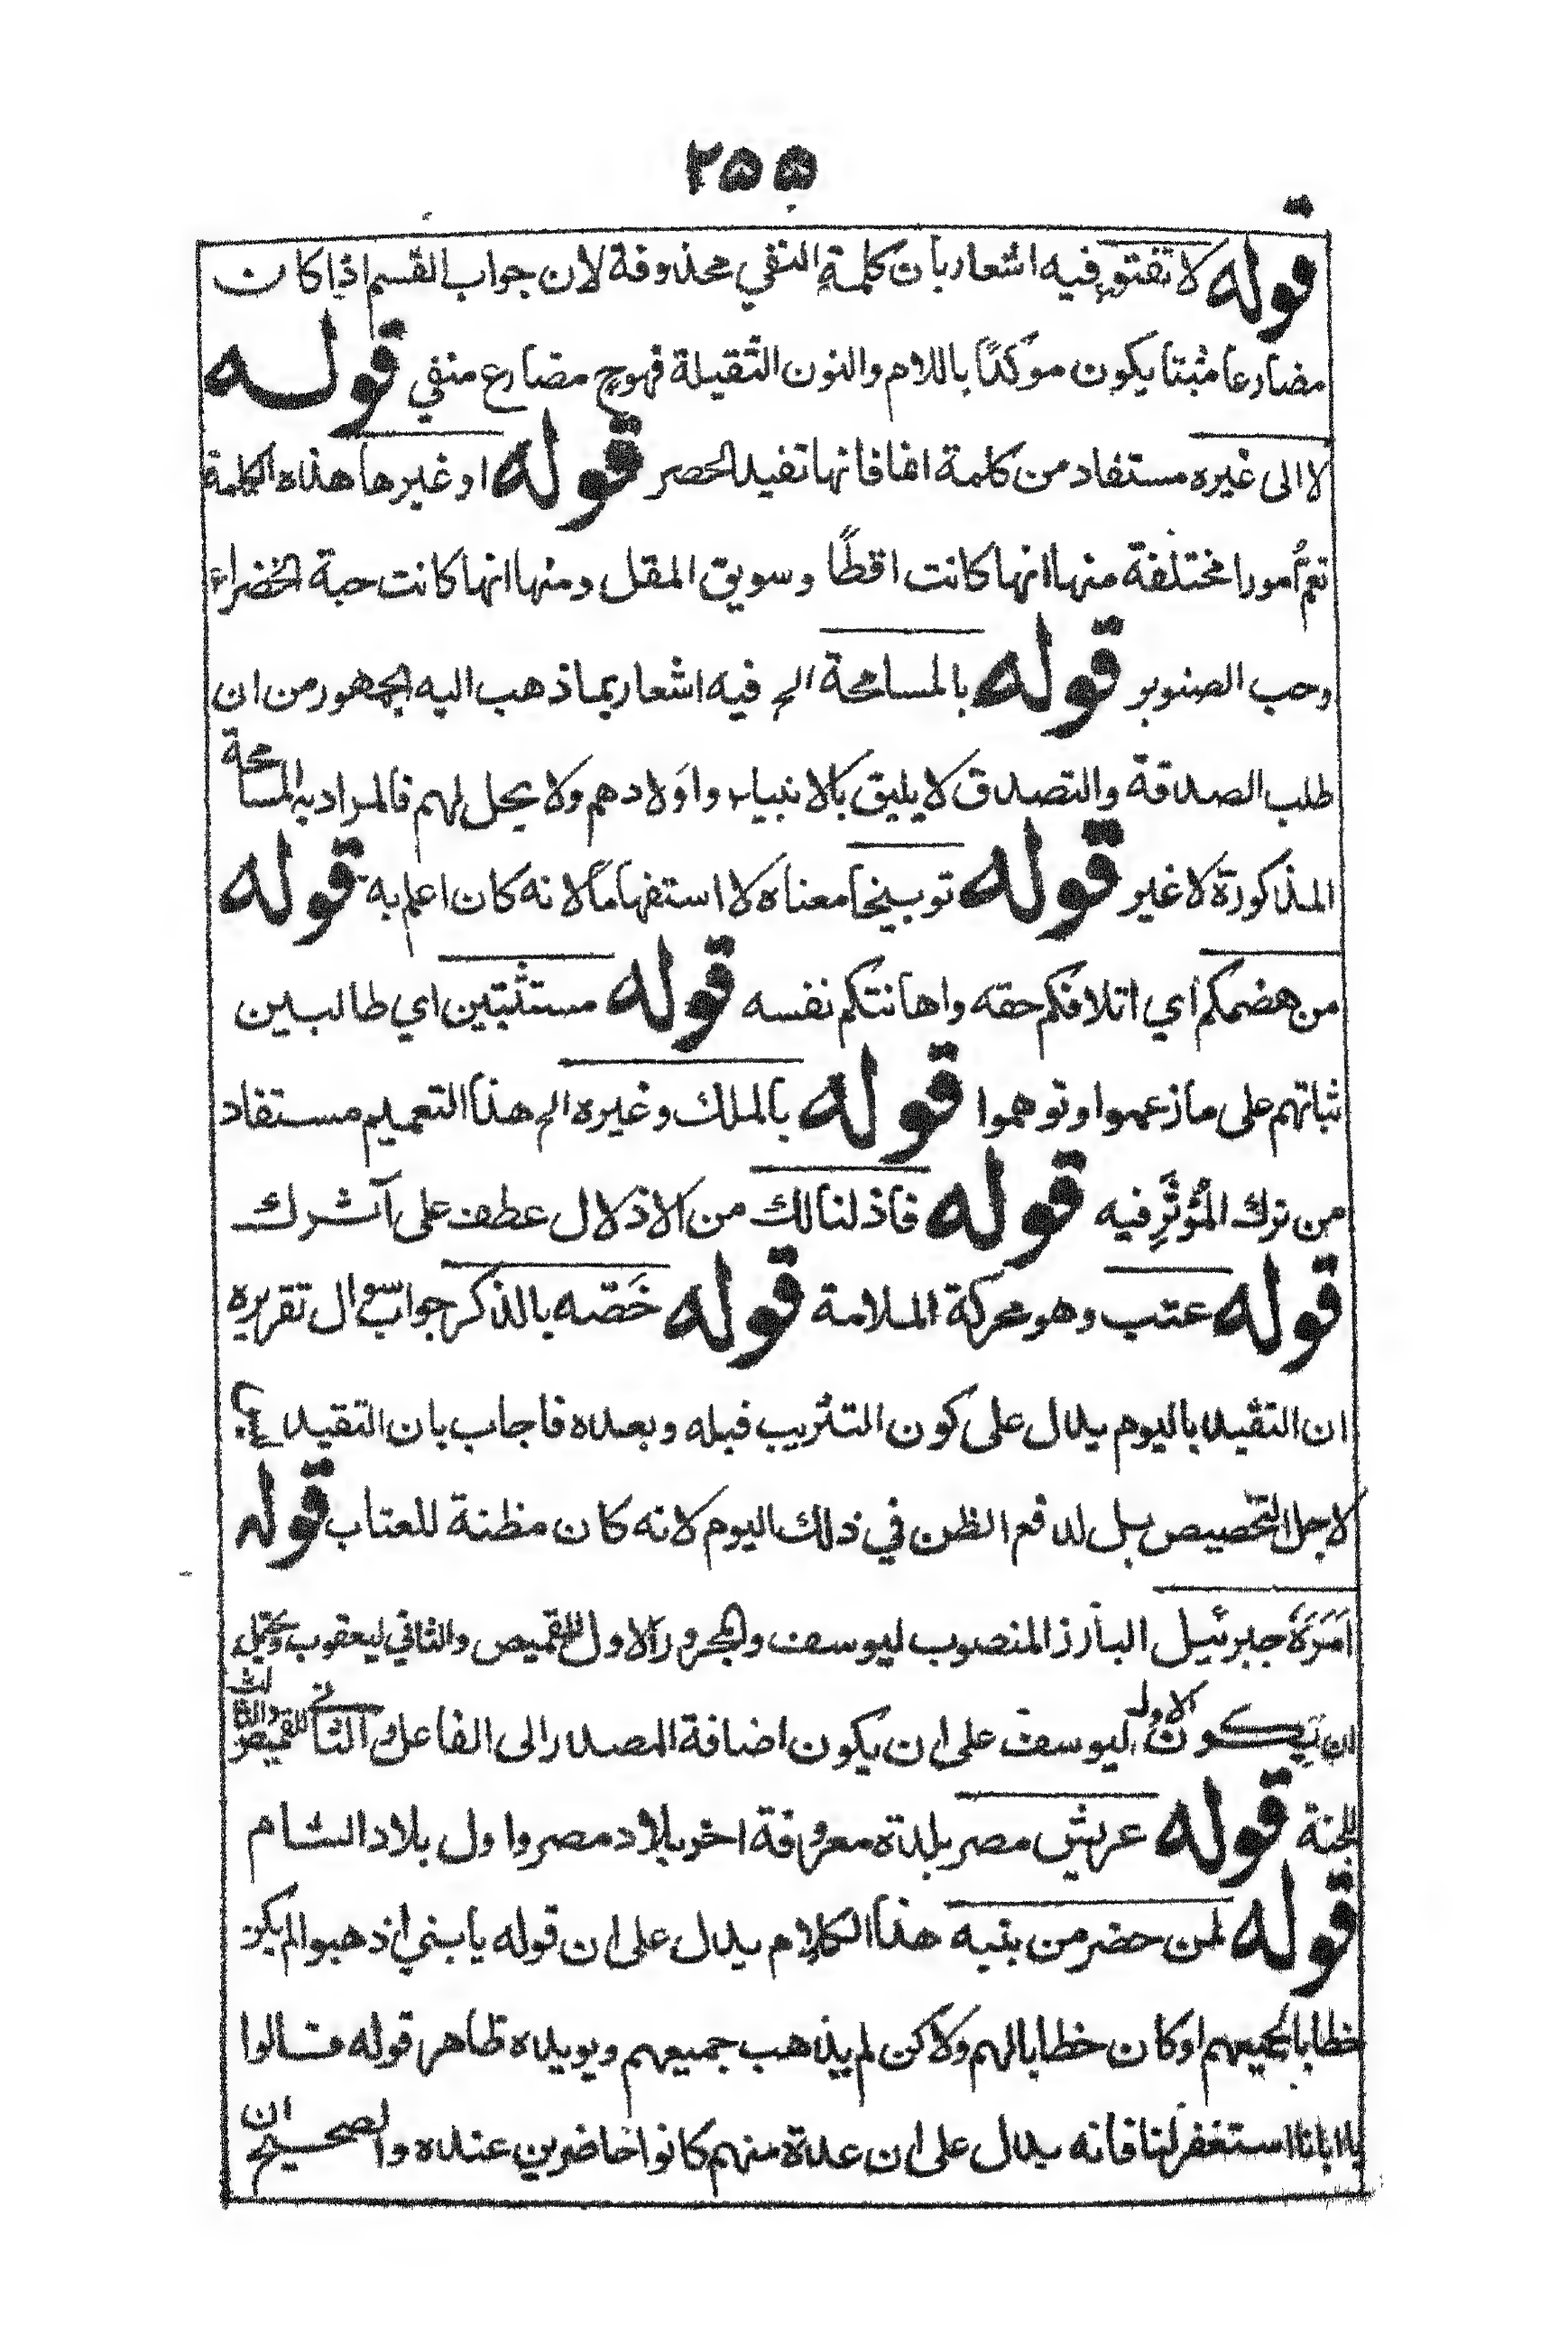 ٢٥٥
قوله لا تفتؤ فيه اشعار بان كلمة النفي محذوفة لان جواب القسم اذا كان
مضارعا مثبتا يكون موكدًا باللام والنون الثقيلة فهو ح مضارع منفي قوله
لا الى غيره مستفاد من كلمة انما فانها تفيد الحصر قوله او غيرها هذه الكلمة
تعم أمورا مختلفة منها انها كانت اقطًا وسويق المقل ومنها انها كانت حبة الخضراء
وحب الصنوبر قوله بالمسامحة الخ فيه اشعار بما ذهب اليه الجمهور من ان
طلب الصدقة والتصدق لا يليق بالانبياء واولادهم ولا يحل لهم فالمراد به المسامحة
المذكورة لا غير قوله توبيخا معناه لا استفهامًا لانه كان اعلم به قوله
من هضمكم اي اتلافكم حقه واهانتكم نفسه قوله مستثبتين اي طالبين
ثباتهم على ما زعموا وتوهموا قوله بالملك وغيره الخ هذا التعميم مستفاد
من ترك المؤثر فيه قوله فاذلنا لك من الاذلال عطف على آثرك
قوله عتب وهو محركة الملامة قوله خصه بالذكر جواب سوال تقريره
ان التقيد باليوم يدل على كون التثريب قبله وبعده فاجاب بان التقيد
لاجل التخصيص بل لدفع الظن في ذلك اليوم لانه كان مظنة للعتاب قوله
امره جبرئيل البارز المنصوب ليوسف والمجرور الاول للقميص والثاني ليعقوب ويحتمل
ان يكون الاول ليوسف على ان يكون اضافة المصدر الى الفاعل والثاني للقميص والثالث
للجنة قوله عريش مصر بلدة معروفة اخر بلاد مصر واول بلاد الشام
قوله لمن حضر من بنيه هذا الكلام يدل على ان قوله يا بني اذهبوا لم يكن
خطابا لجميعهم او كان خطابا لهم ولاكن لم يذهب جميعهم ويويده ظاهر قوله قالوا
يا ابانا استغفر لنا فانه يدل على ان عدة منهم كانوا حاضرين عنده والصحيح ان